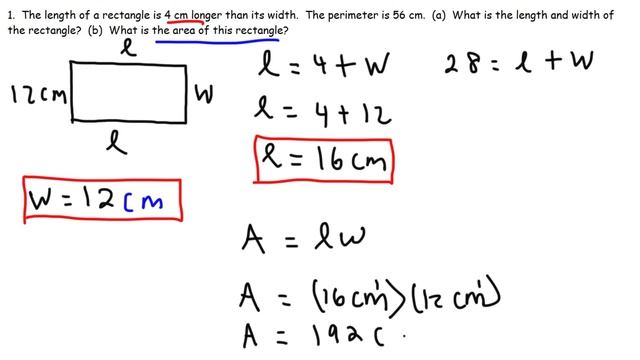 1. The length of a rectangle is 4 cm longer than its width. The perimeter is 56 cm. (a) What is the length and width of
the rectangle? (b) What is the area of this rectangle?
l
12cm
W
l
W = 12 cm
l = 4 + W
l = 4 + 12
l = 16 cm
28 = l + W
A = lw
A = (16 cm¹)(12 cm¹)
A = 192 c